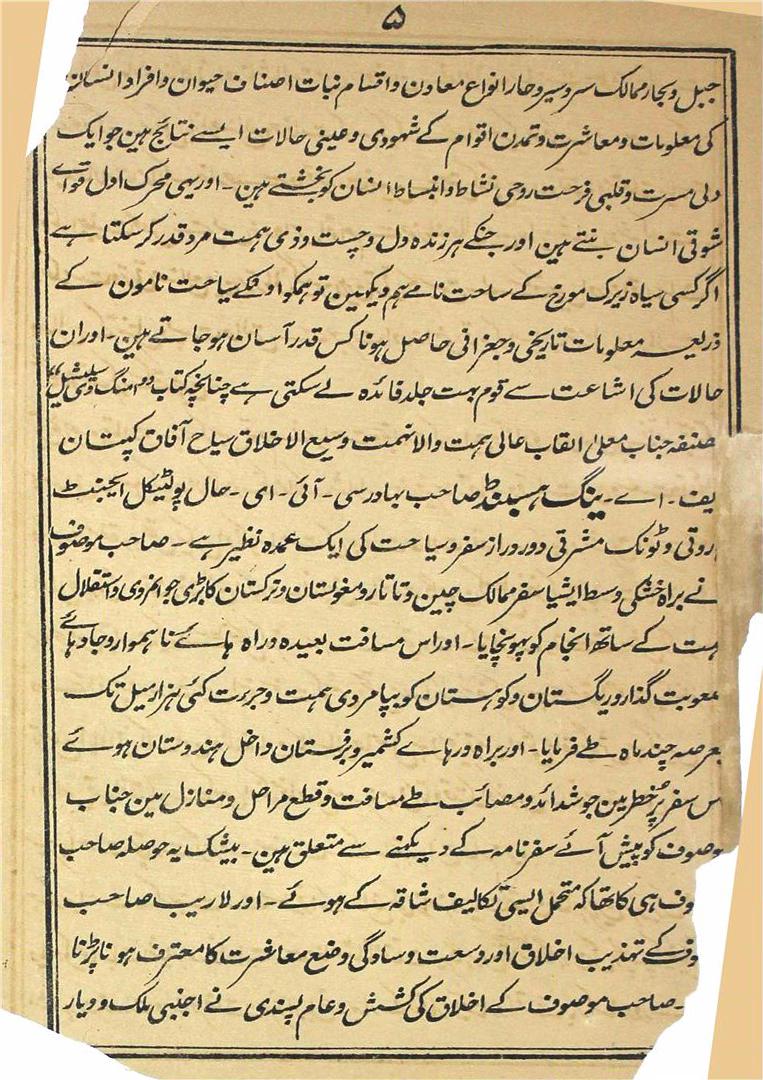 ۵
جبل و بحار ممالک سرد سیر و حار انواع معادن و اقسام نبات اصناف حیوان و افراد انسان
کی معلومات و معاشرت و تمدن اقوام کے شہودی و عینی حالات ایسے نتائج ہین جو ایک
دلی مسرت و قلبی فرحت روحی نشاط و انبساط انسان کو بخشتے ہین ۔ اور یہی محرک اول قواے
شوقی انسان بنتے ہین اور جنکے ہر زندہ دل و چست و ذی ہمت مرد قدر کر سکتا ہے
اگر کسی سیاہ زیرک مورخ کے ساحت نامے ہم دیکہین تو ہمکو اونکے سیاحت نامون کے
ذریعہ معلومات تاریخی و جغرافی حاصل ہونا کس قدر آسان ہو جاتے ہین ۔ اور ان
حالات کی اشاعت سے قوم بہت جلد فائدہ لے سکتی ہے چنانچہ کتاب
صنفہ جناب معلیٰ القاب عالی ہمت والا نہمت وسیع الاخلاق سیاح آفاق کپتان
یف ۔ اے ۔ ینگ ہسبنڈ صاحب بہادر سی ۔ آئی ۔ ای ۔ حال پولٹیکل ایجنٹ
روتی و ٹونک مشرقی دور دراز سفر و سیاحت کی ایک عمدہ نظیر ہے ۔ صاحب موصوف
نے براہ خشکی وسط ایشیا سفر ممالک چین و تاتار و مغولستان و ترکستان کا بڑی جوانمردی و استقلال
ہمت کے ساتھ انجام کو پہونچایا ۔ اور اس مسافت بعیدہ و راہ ہائے نا ہموار و جادہائے
معوبت گذار و ریگستان و کوہستان کو بپامردی ہمت و جرءت کئی ہزار میل تک
بعرصہ چند ماہ طے فرمایا ۔ اور براہ درہاے کشمیر و برفستان داخل ہندوستان ہوئے
س سفر پُر خطر مین جو شدائد و مصائب طے مسافت و قطع مراحل و منازل مین جناب
وصوف کو پیش آئے سفرنامہ کے دیکہنے سے متعلق ہین ۔ بیشک یہ حوصلہ صاحب
وف ہی کا تھا کہ متحمل ایسی تکالیف شاقہ کے ہوئے ۔ اور لاریب صاحب
وف کے تہذیب اخلاق اور وسعت و سادگی وضع معاشرت کا معترف ہونا پڑنا
۔ صاحب موصوف کے اخلاق کی کشش و عام پسندی نے اجنبی ملک و دیار